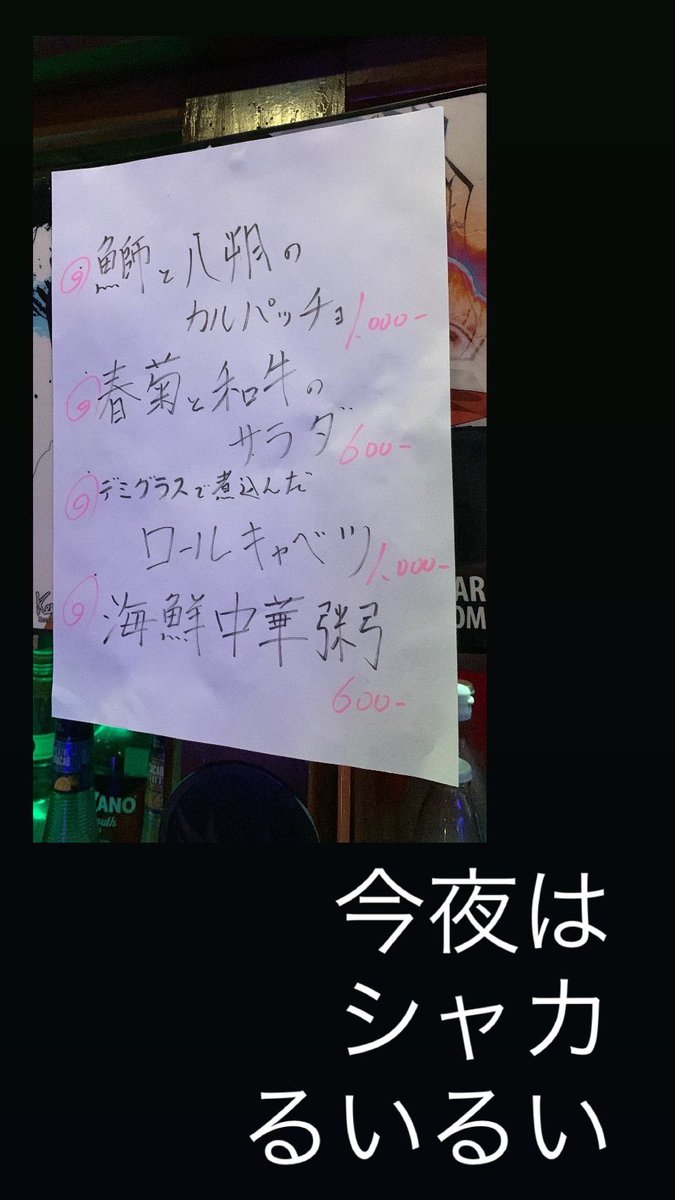 鰤と八朔の
カルパッチョ 1.000-
春菊と和牛の
サラダ 600-
デミグラスで煮込んだ
ロールキャベツ 1.000-
海鮮中華粥
600-
AR
OM
ANO
今夜は
シャカ
るいるい